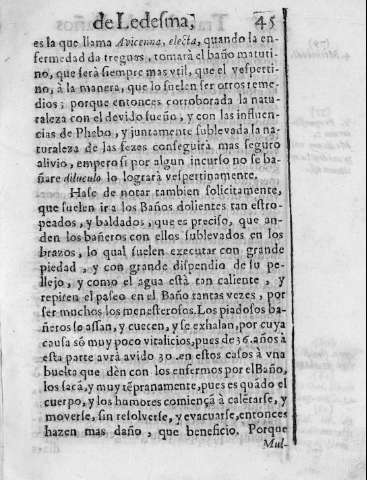 de Ledesma; 45
es la que llama Avicenna, electa, quando la en-
fermedad da treguas, tomarà el baño matuti-
no, que serà siempre mas vtil, que el vesperti-
no, à la manera, que lo suelen ser otros reme-
dios; porque entonces corroborada la natu-
raleza con el devido sueño, y con las influen-
cias de Phebo, y juntamente sublevada la na-
turaleza de las fezes conseguirà mas seguro
alivio, empero si por algun incurso no se ba-
ñare diluculo lo logrará vespertinamente.
Hase de notar tambien solicitamente,
que suelen ir a los Baños dolientes tan estro-
peados, y baldados, que es preciso, que an-
den los bañeros con ellos sublevados en los
brazos, lo qual suelen executar con grande
piedad, y con grande dispendio de su pe-
llejo, y como el agua està tan caliente, y
repiten el paseo en el Baño tantas vezes, por
ser muchos los menesterosos. Los piadosos ba-
ñeros se assan, y cuecen, y se exhalan, por cuya
causa sõ muy poco vitalicios, pues de 36. años à
esta parte avrà avido 30. en estos casos à vna
buelta que dèn con los enfermos por el Baño,
los sacã, y muy tẽpranamente, pues es quãdo el
cuerpo, y los humores comiençã à calẽtarse, y
moverse, sin resolverse, y evacuarse, entonces
hazen mas daño, que beneficio. Porque
Mul-